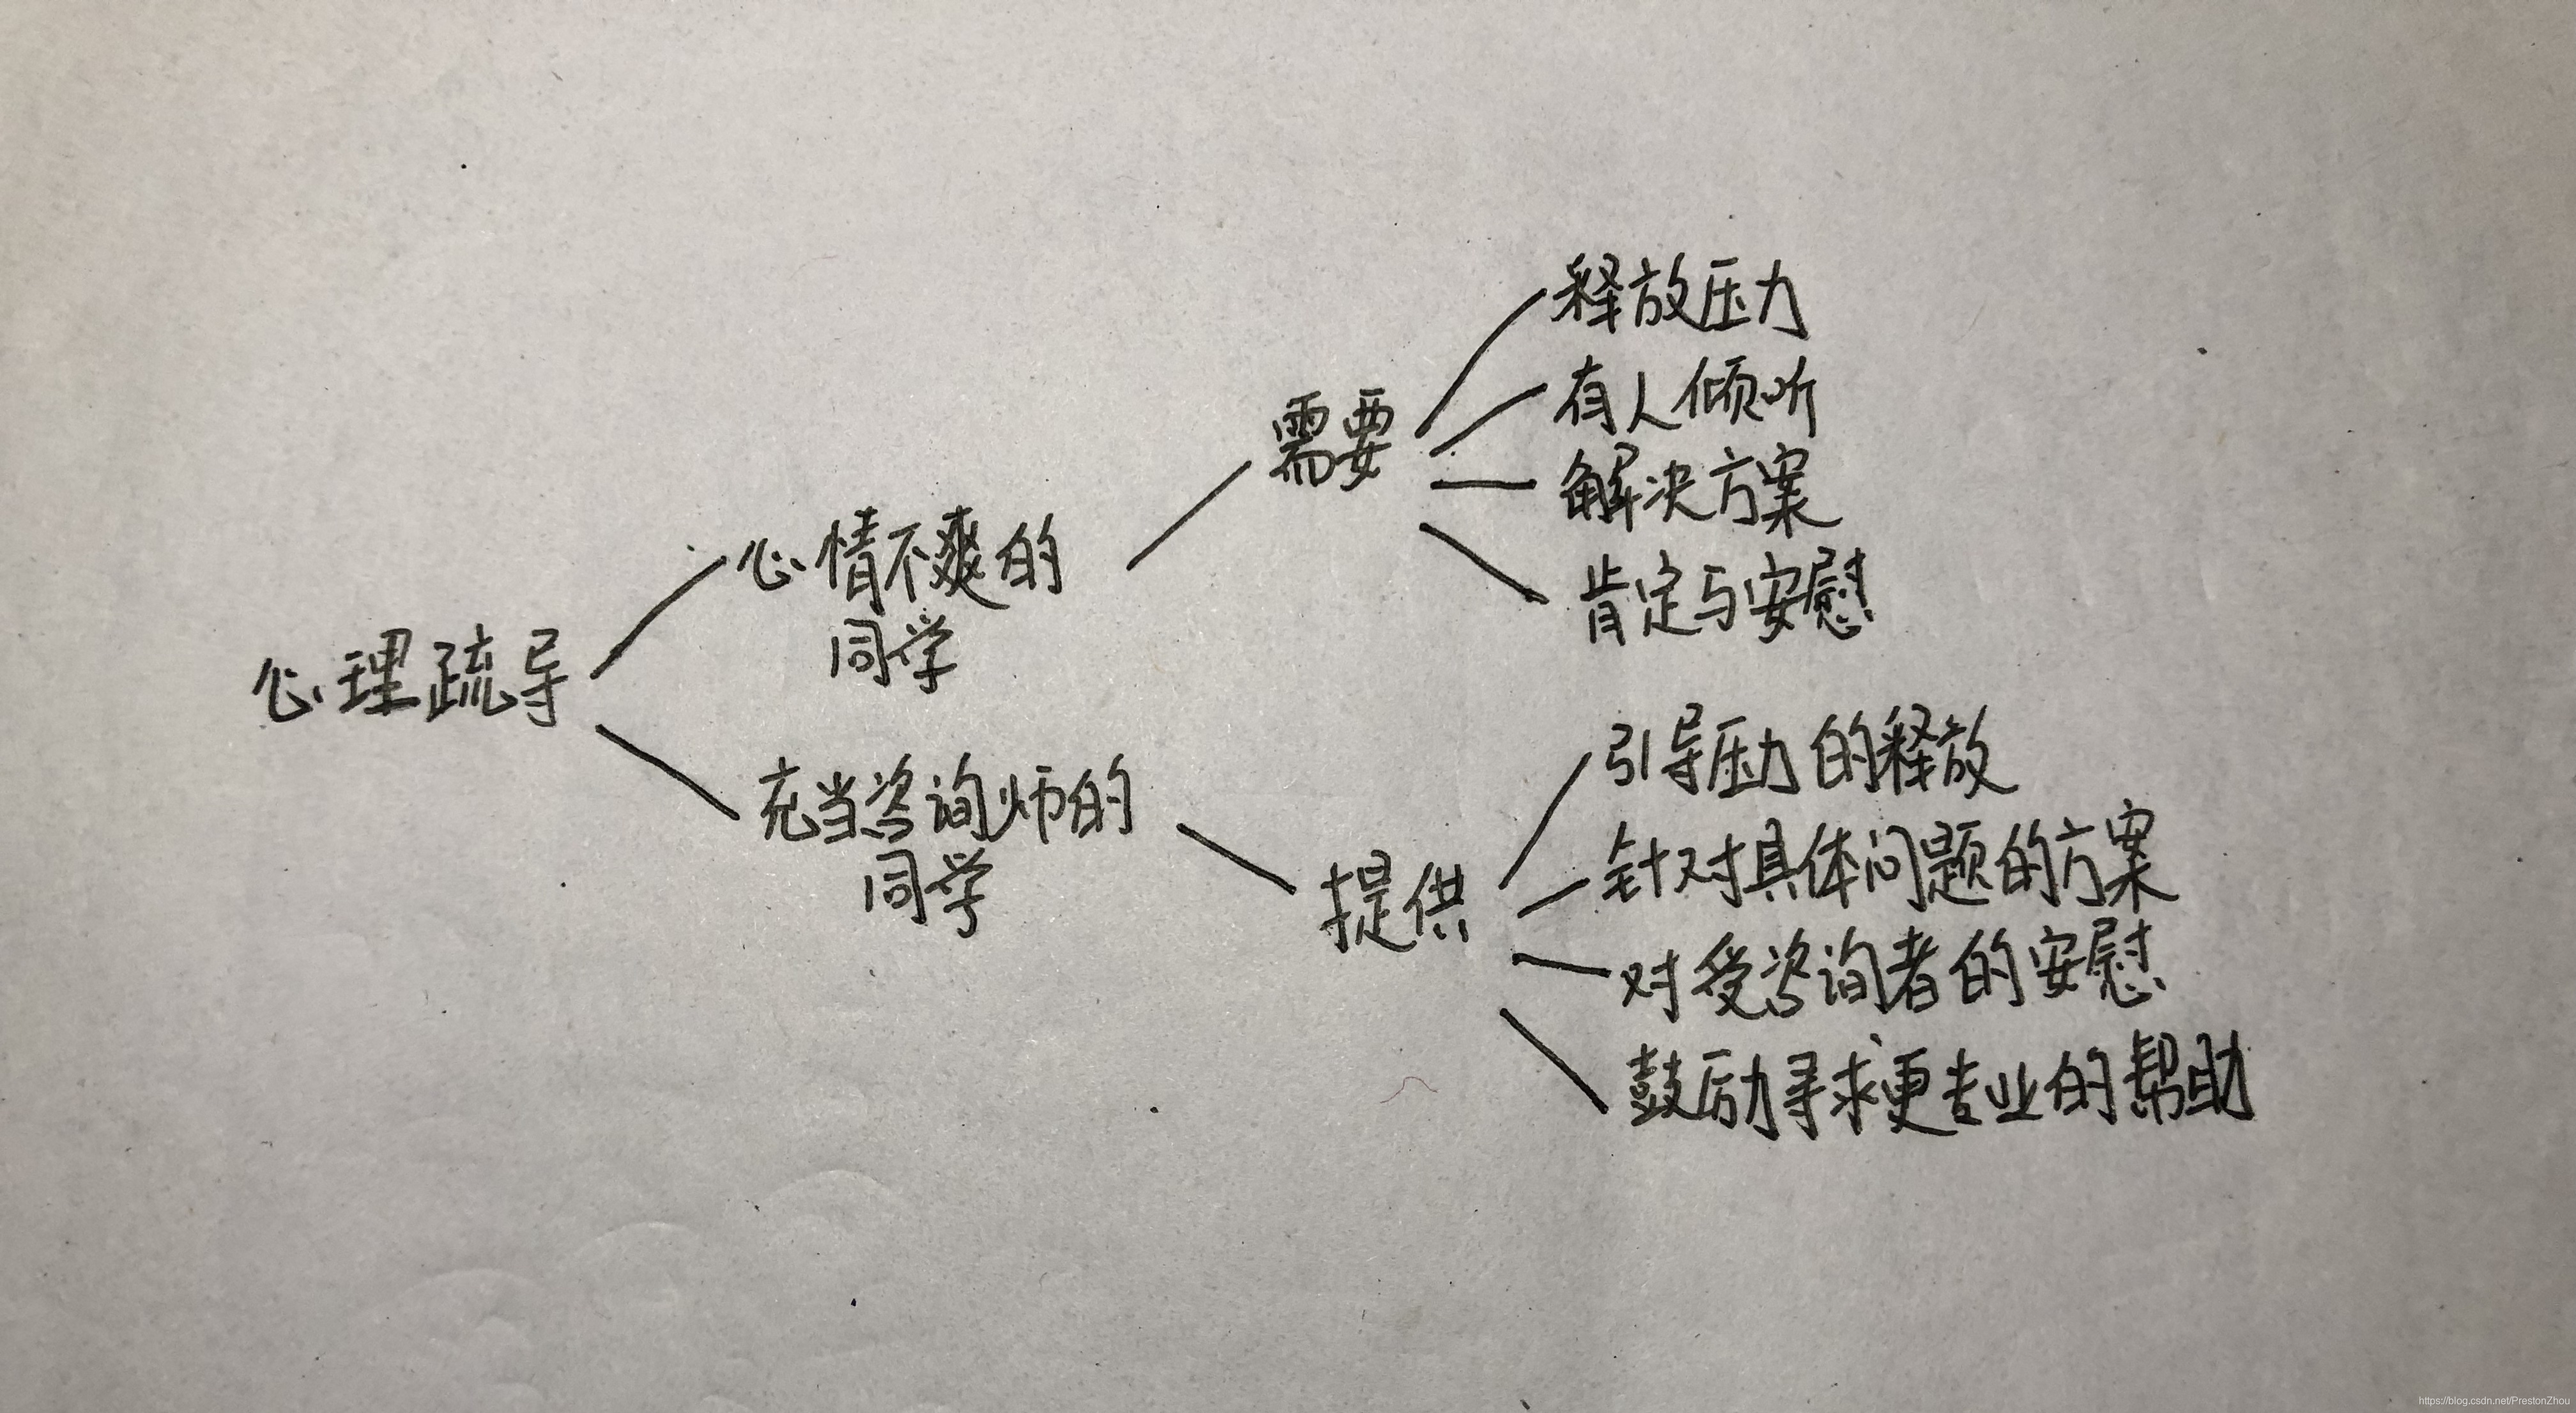 心理疏导
心情不爽的
同学
需要
释放压力
有人倾听
解决方案
肯定与安慰
充当咨询师的
同学
提供
引导压力的释放
针对具体问题的方案
对受咨询者的安慰
鼓励寻求更专业的帮助
https://blog.csdn.net/PrestonZhou